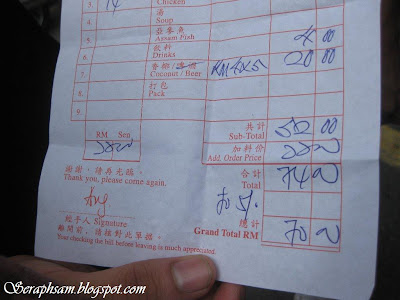 3. 14 Chicken
4. 湯
Soup
5. 亞參魚 4 00
Assam Fish
6. 飲料 20 00
Drinks
7. 香椰/啤酒 RM4x5
Coconut / Beer
8. 打包
Pack
9.
共計 50 00
Sub-Total
RM Sen 加料價
Add. Order Price
謝謝，請再光臨。 合計 74 00
Thank you, please come again. Total
經手人 Signature 總計 70 00
Grand Total RM
離開前，請核對此單據。
Your checking the bill before leaving is much appreciated.
Seraphsam.blogspot.com